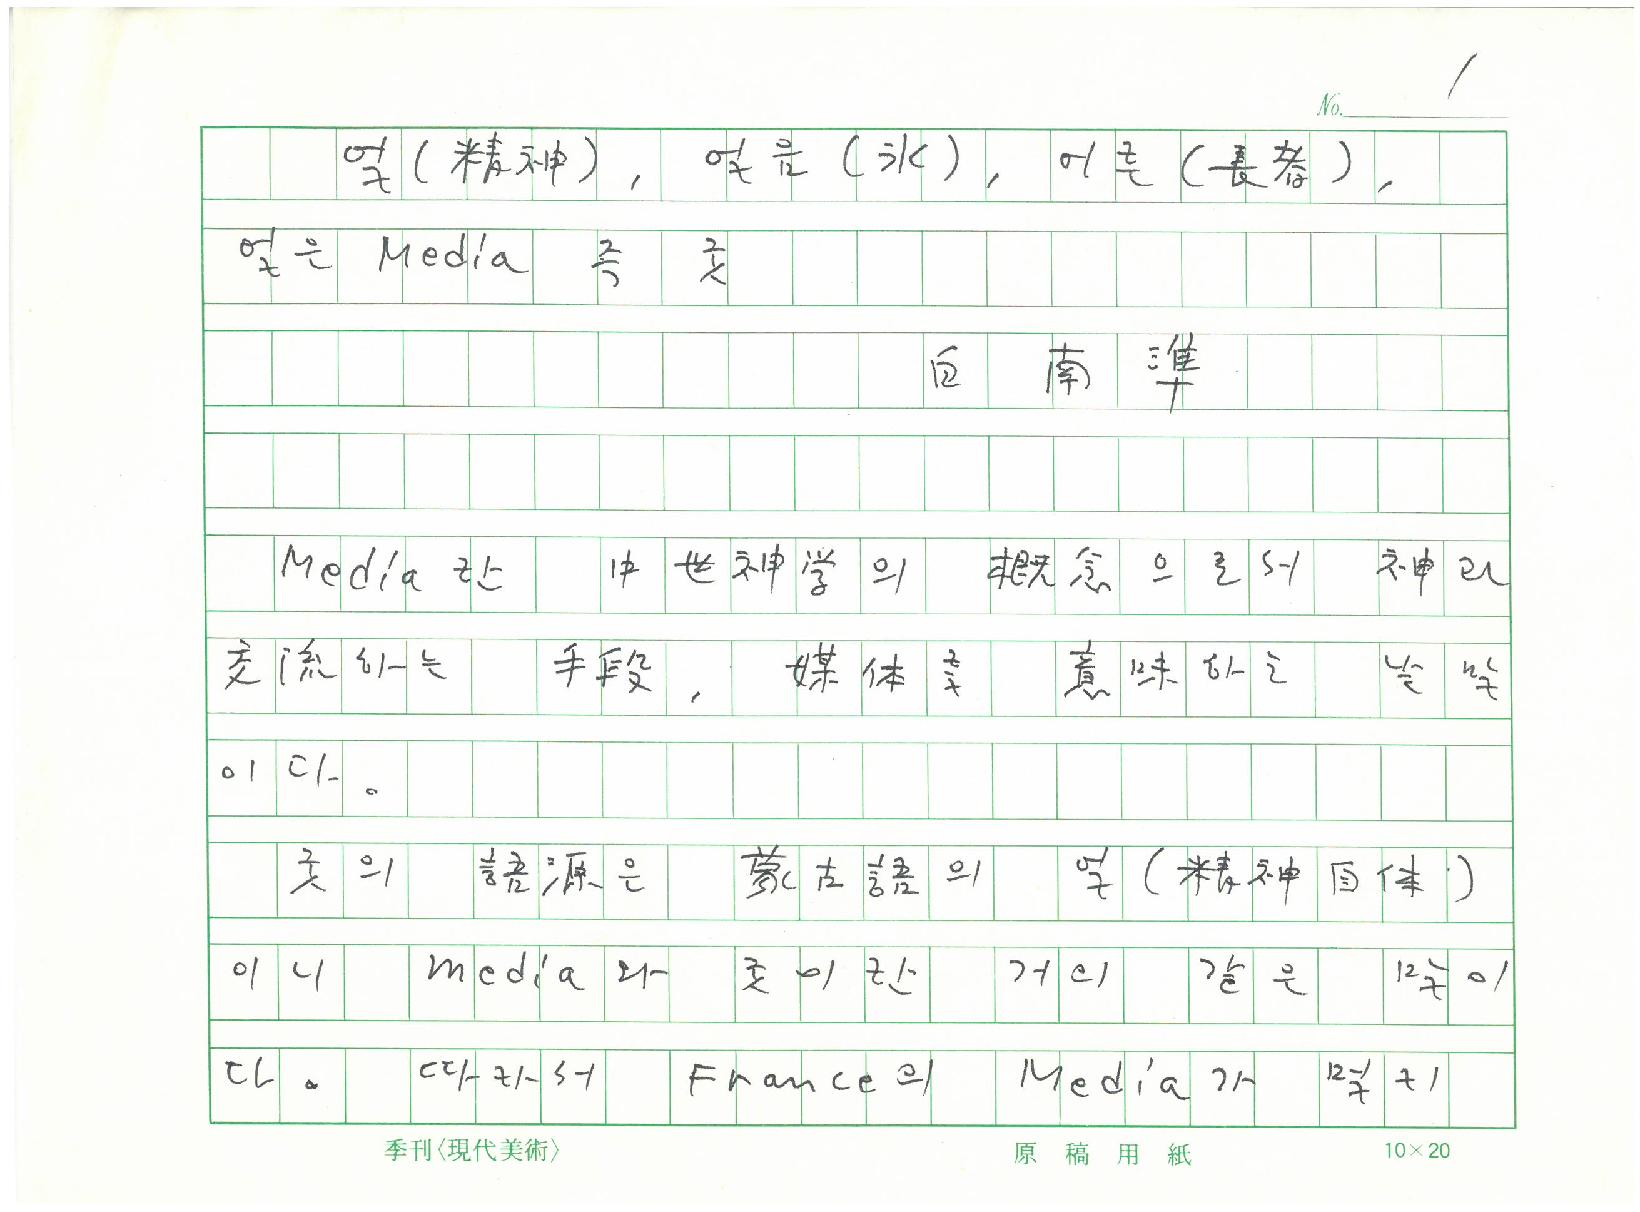 No. 1
얼(精神), 얼음(氷), 어른(長者),
얼은 Media 즉 굿
白南準
Media란 中世神学의 概念으로서 神과
交流하는 手段, 媒体를 意味하는 낱말
이다。
굿의 語源은 蒙古語의 얼(精神自体)
이니 media와 굿이란 거의 같은 말이
다。 따라서 France의 Media가
季刊〈現代美術〉 原稿用紙 10×20